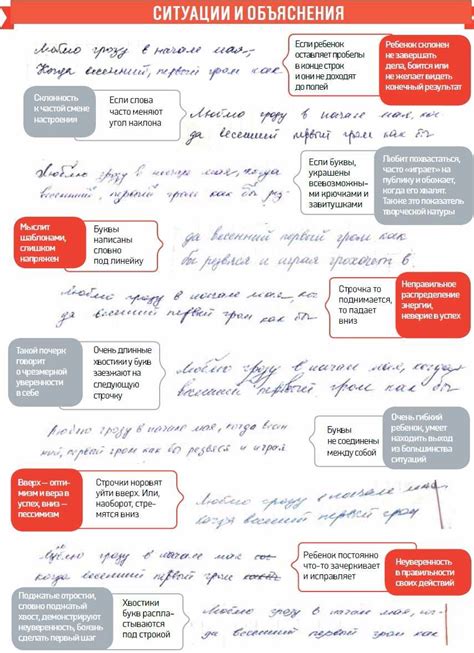 СИТУАЦИИ И ОБЪЯСНЕНИЯ
Люблю грозу в начале мая,
Когда весенний, первый гром как
Если ребенок
оставляет пробелы
в конце строк
и они не доходят
до полей
Ребенок склонен
не завершать
дела, боится или
не желает видеть
конечный результат
Склонность
к частой смене
настроения
Если слова
часто меняют
угол наклона
Люблю грозу в начале мая, ког
да весенний первый гром как бы
Люблю грозу в начале мая, когда
весенний, первый гром как бы рез
Если буквы,
украшены
всевозможны-
ми крючками и
завитушками
Любит похвастаться,
часто «играет» на
публику и обожает,
когда его хвалят.
Также это показатель
творческой натуры
Мыслит
шаблонами,
слишком
напряжен
Буквы
написаны
словно
под линейку
да весенний первый гром как
бы резвяся и играя грохочет в
Люблю грозу в начале мая, ко
да весенний первый гром как бы
Строчка то
поднимается,
то падает
вниз
Неправильное
распределение
энергии,
неверие в успех
Такой почерк
говорит
о чрезмерной
уверенности
в себе
Очень длинные
хвостики у букв
заезжают на
следующую
строчку
Люблю грозу в начале мая, когда
весенний первый гром как бы
Люблю грозу в начале мая, когда весен
ний, первый гром как бы резвяся и играя
Буквы
не соединены
между собой
Очень гибкий
ребенок, умеет
находить выход
из большинства
ситуаций
Вверх – опти-
мизм и вера в
успех, вниз –
пессимизм
Строчки норовят
уйти вверх. Или,
наоборот, стре-
мятся вниз
Люблю грозу в начале мая
когда весенний первый гром
Люблю грозу в начале мая
когда весенний, первый гром
Ребенок постоянно
что-то зачеркивает
и исправляет
Неуверенность
в правильности
своих действий
Поджатые отростки,
словно поджатый
хвост, демонстрируют
неуверенность, боязнь
сделать первый шаг
Хвостики
букв распла-
стываются
под строкой
Люблю грозу в начале мая, ког-
да весенний первый гром как